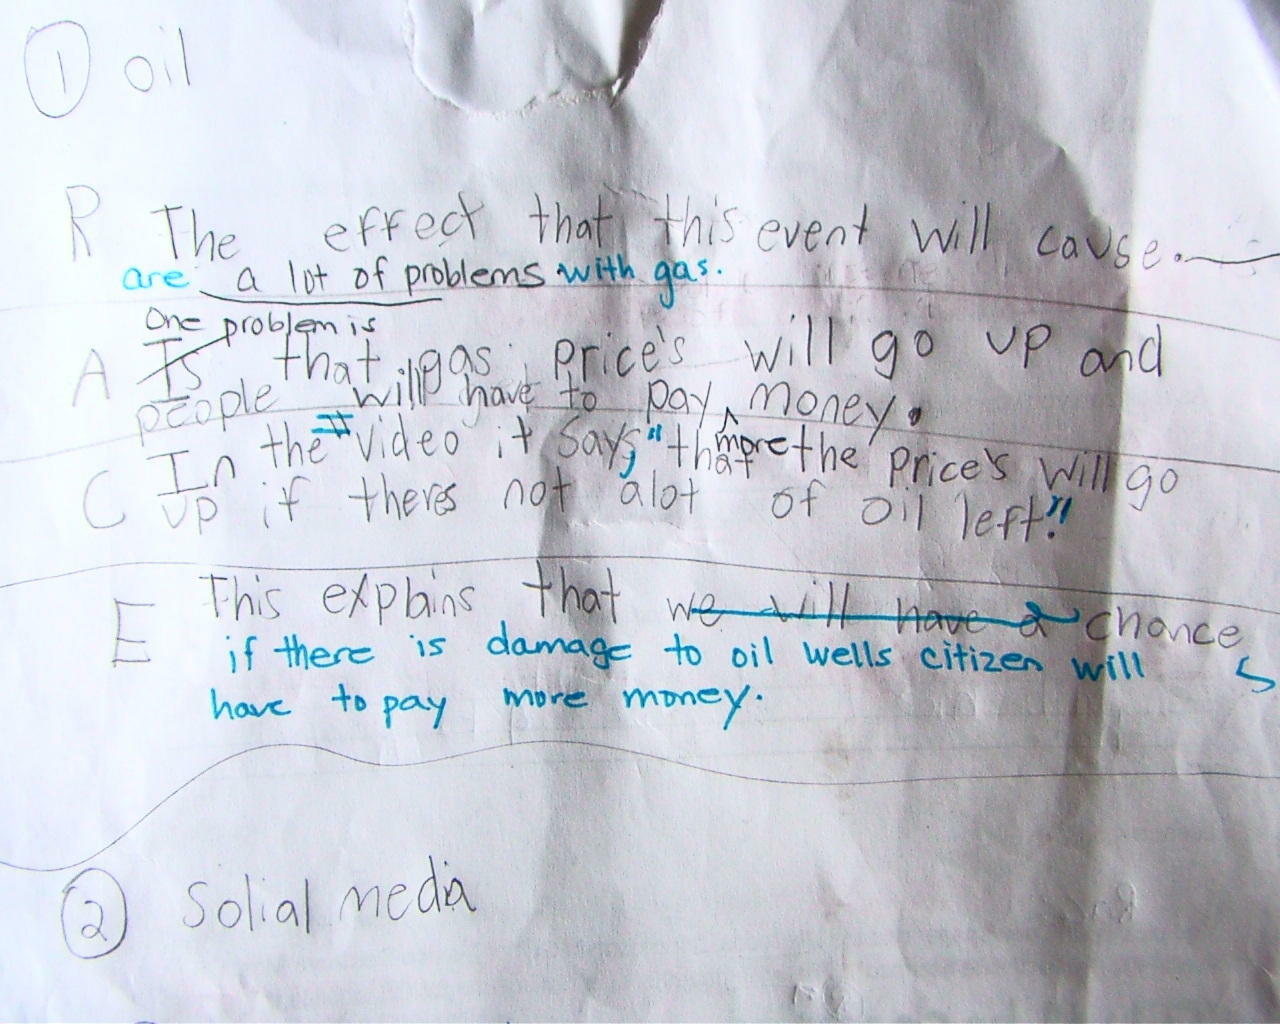 1 oil
R The effect that this event will cause.
are a lot of problems with gas.
One problem is
A Is that gas price's will go up and
people will have to pay ^ money.
more
C In the video it says, "that the price's will go
up if theres not alot of oil left."
E This explains that we will have a chance
if there is damage to oil wells citizen will
have to pay more money.
2 Solial media